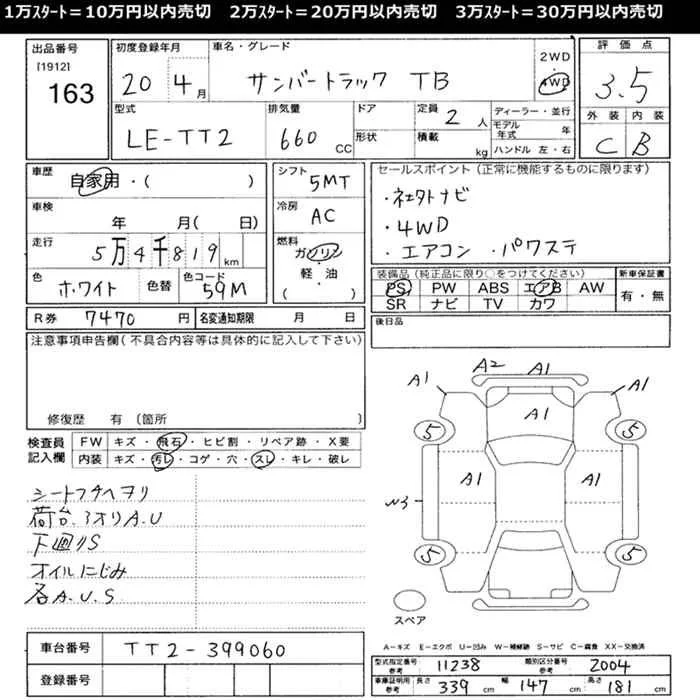 1万スタート＝10万円以内売切　2万スタート＝20万円以内売切　3万スタート＝30万円以内売切
出品番号
[1912]
163
初度登録年月
20 4月
車名・グレード
サンバートラック TB
2WD
・
4WD
評価点
3.5
外装 内装
C B
型式
LE-TT2
排気量
660 CC
ドア
形状
定員 2 人
積載 kg
ディーラー・並行
モデル年式 年
ハンドル 左・右
車歴
自家用・( )
シフト
5MT
車検
年 月( 日)
冷房
AC
走行
5万4千819 km
燃料
ガソリン
・
軽・油
( )
色
ホワイト
色替
色コード
59M
R券 7470 円
名変通知期限 月 日
セールスポイント（正常に機能するものに限ります）
・4WD
・エアコン ・パワステ
装備品（純正品に限り○をつけてください）
PS PW ABS エアB AW
SR ナビ TV カワ
新車保証書
有・無
後日品
注意事項申告欄(不具合内容等は具体的に記入して下さい)
修復歴 有 〔箇所
検査員
記入欄
FW キズ・飛石・ヒビ割・リペア跡・X要
内装 キズ・汚レ・コゲ・穴・スレ・キレ・破レ
荷台.3オリA.U
下廻りS
オイルにじみ
各A.U.S
車台番号 TT2-399060
登録番号
A1 A2 A1 A1
A1
5 5
A1 A1
5 5
スペア
A＝キズ E＝エクボ U＝凹み W＝補修跡 S＝サビ C＝腐食 XX＝交換済
型式指定番号 参考 11238 類別区分番号 参考 2004
車庫証明用 参考 長さ 339 cm 幅 147 cm 高さ 181 cm